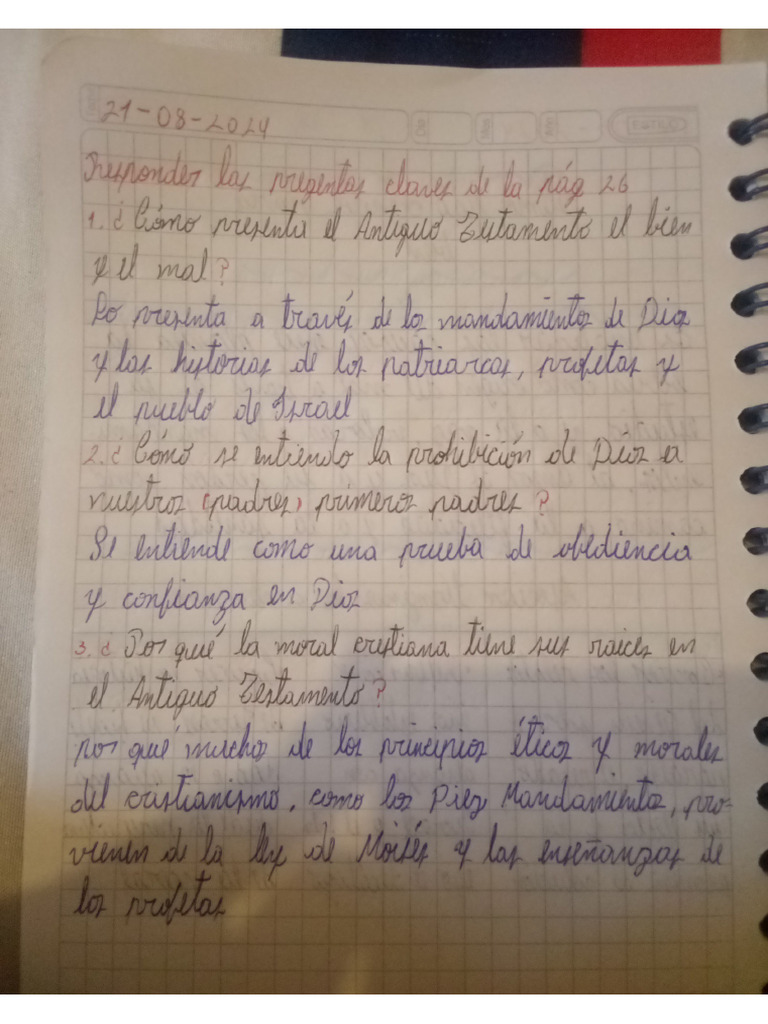 21-08-2024
Responder las pregentas claves de la pág 26
1. ¿Cómo presenta el Antiguo Testamento el bien
y el mal?
Lo presenta a través de los mandamientos de Dios
y las historias de los patriarcas, profetas y
el pueblo de Israel
2. ¿Cómo se entiendo la prohibición de Dios a
nuestros (padres) primeros padres?
Se entiende como una prueba de obediencia
y confianza en Dios
3. ¿Por qué la moral crestiana tiene sus raices en
el Antiguo Testamento?
por qué muchos de los principios éticos y morales
del cristianismo, como los Diez Mandamientos, pro-
vienen de la ley de Moisés y las enseñanzas de
los profetas